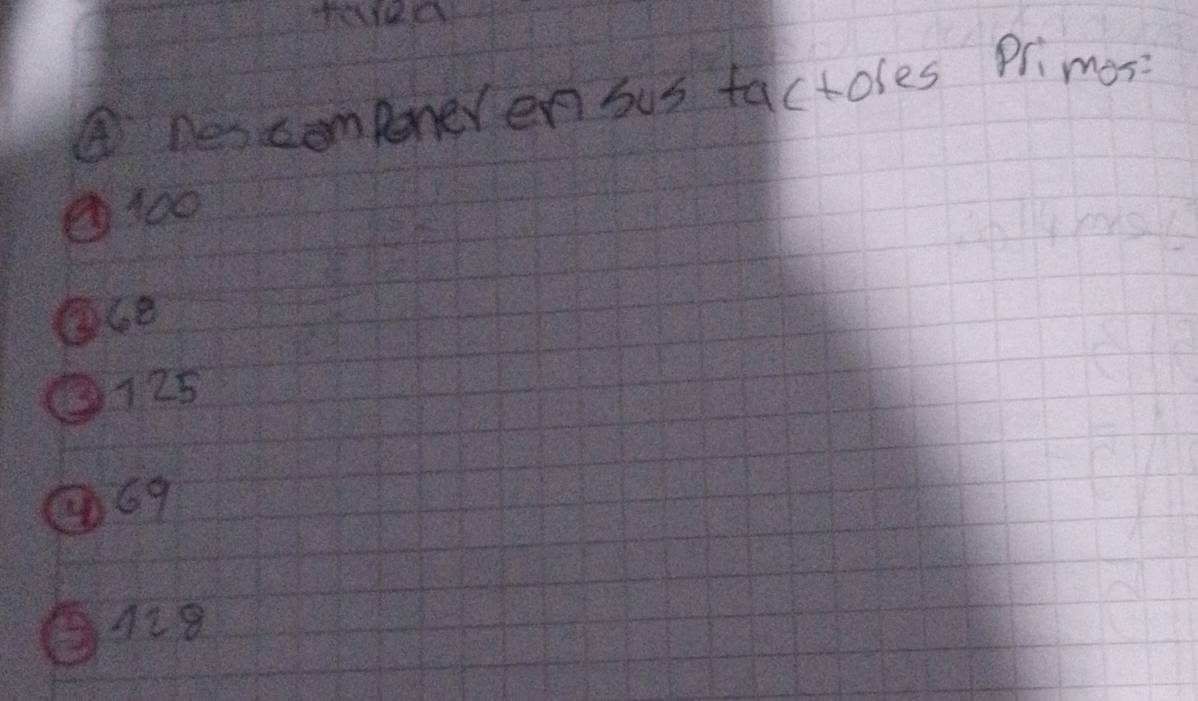 Ⓐ Descomponer en sus factores Primos:
① 100
② 68
③ 125
④ 69
⑤ 128